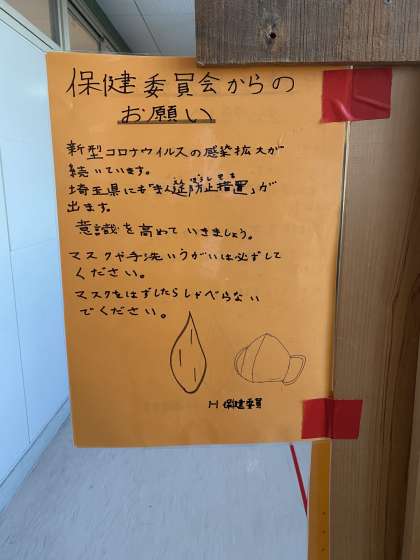 保健委員会からの
お願い
新型コロナウイルスの感染拡大が
続いています。
埼玉県にも「まん延防止措置」が
ぼうしそち
出ます。
意識を高めていきましょう。
マスクや手洗いうがいは必ずして
ください。
マスクをはずしたらしゃべらない
でください。
保健委員